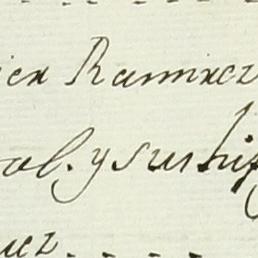 ien Ramirez
ol. y sus hij
uez